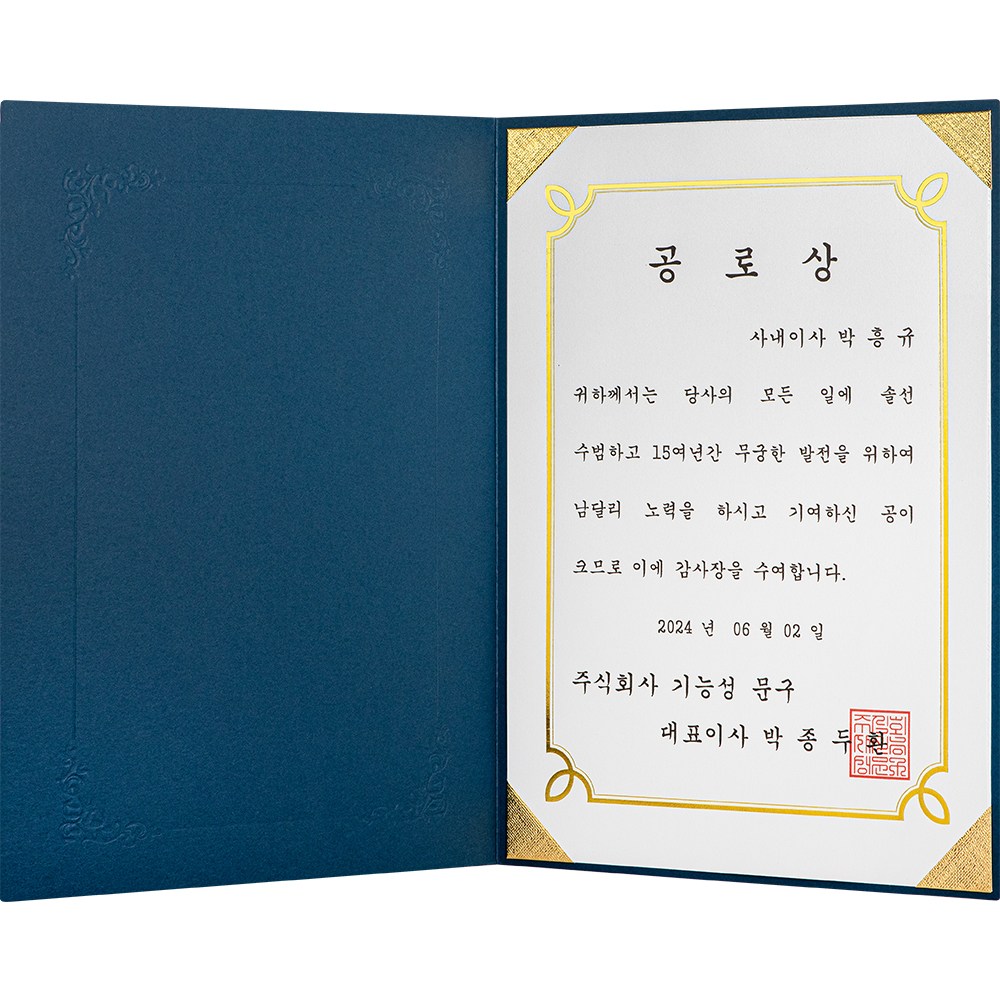 공 로 상
사내이사 박 흥 규
귀하께서는 당사의 모든 일에 솔선
수범하고 15여년간 무궁한 발전을 위하여
남달리 노력을 하시고 기여하신 공이
크므로 이에 감사장을 수여합니다.
2024 년 06 월 02 일
주식회사 기능성 문구
대표이사 박 종 두 환